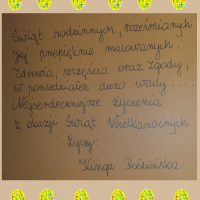 Świąt rodzinnych, roześmianych
Jaj przepięknie malowanych.
Zdrowia, szczęścia oraz zgody,
w poniedziałek dużo wody....
Najserdeczniejsze życzenia
z okazji Świąt Wielkanocnych
życzy:
Kinga